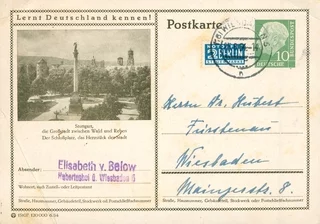 Lernt Deutschland kennen!
Postkarte
NOTOPFER
2 BERLIN
STEUERMARKE
DEUTSCHE BUNDESPOST
10
Stuttgart,
die Großstadt zwischen Wald und Reben
Der Schloßplatz, das Herzstück der Stadt
Absender:
Elisabeth v. Below
Wiesbaden 6
Wohnort, auch Zustell- oder Leitpostamt
Straße, Hausnummer, Gebäudeteil, Stockwerk od. Postschließfachnummer
Herrn Dr. Herbert
Wiesbaden
Mainzerstr. 8.
Straße, Hausnummer, Gebäudeteil, Stockwerk oder Postschließfachnummer